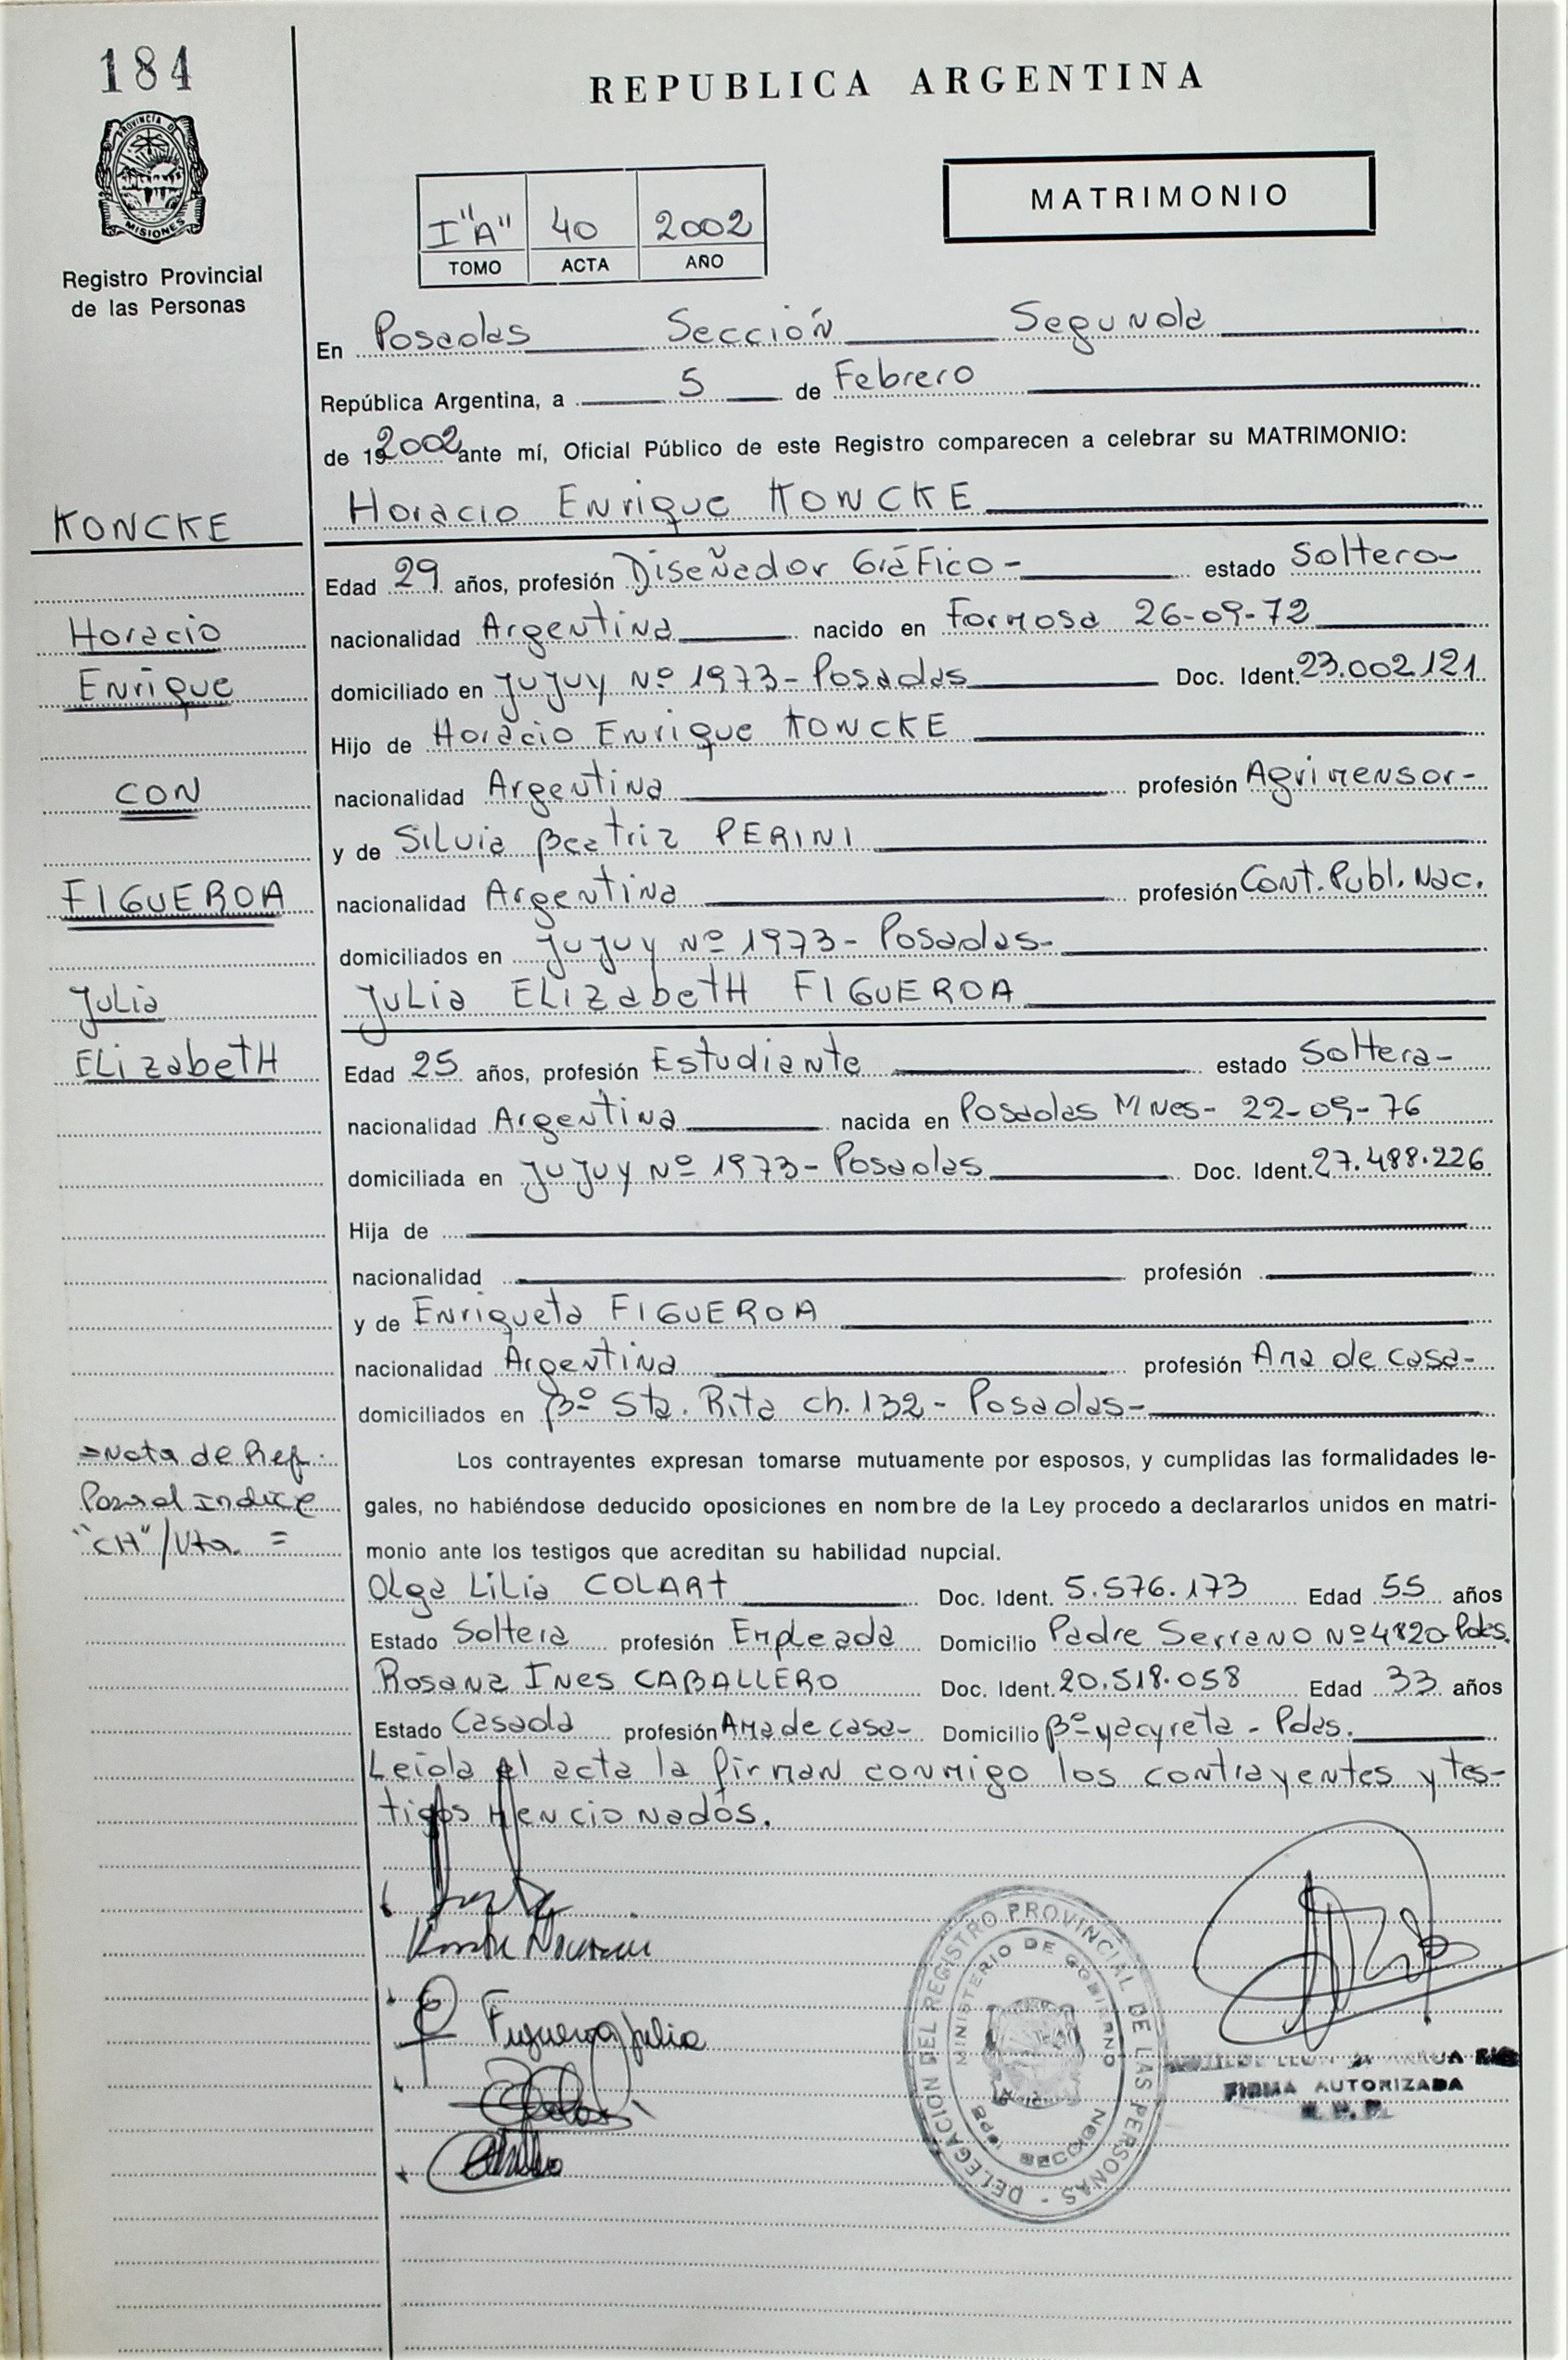 184
PROVINCIA DE
MISIONES
Registro Provincial
de las Personas
REPUBLICA ARGENTINA
MATRIMONIO
I "A" 40 2002
TOMO ACTA AÑO
En Posadas Sección Segunda
República Argentina, a 5 de Febrero
de 19 2002 ante mí, Oficial Público de este Registro comparecen a celebrar su MATRIMONIO:
KONCKE
Horacio Enrique KONCKE
Edad 29 años, profesión Diseñador Gráfico - estado Soltero-
Horacio
nacionalidad Argentina nacido en Formosa 26-09-72
Enrique
domiciliado en Jujuy Nº 1973- Posadas Doc. Ident. 23.002.121
Hijo de Horacio Enrique KONCKE
CON
nacionalidad Argentina profesión Agrimensor-
y de Silvia Beatriz PERINI
FIGUEROA
nacionalidad Argentina profesión Cont. Publ. Nac.
domiciliados en Jujuy Nº 1973- Posadas-
Julia
Julia ELizabetH FIGUEROA
ELizabetH
Edad 25 años, profesión Estudiante estado Soltera-
nacionalidad Argentina nacida en Posadas Mnes- 22-09-76
domiciliada en Jujuy Nº 1973- Posadas Doc. Ident. 27.488.226
Hija de
nacionalidad profesión
y de Enriqueta FIGUEROA
nacionalidad Argentina profesión Ama de casa-
domiciliados en Bº Sta. Rita ch. 132 - Posadas-
=Nota de Ref.
Para el Indice
"CH"/Vta. =
Los contrayentes expresan tomarse mutuamente por esposos, y cumplidas las formalidades le-
gales, no habiéndose deducido oposiciones en nombre de la Ley procedo a declararlos unidos en matri-
monio ante los testigos que acreditan su habilidad nupcial.
Olga Lilia COLART Doc. Ident. 5.576.173 Edad 55 años
Estado Soltera profesión Empleada Domicilio Padre Serrano Nº 4820- Pdas.
Rosana Ines CABALLERO Doc. Ident. 20.518.058 Edad 33 años
Estado Casada profesión Ama de casa- Domicilio Bº yacyreta - Pdas.
Leida el acta la firman conmigo los contrayentes y tes-
tigos mencionados.
Figueroa Julia
DELEGACION DEL REGISTRO PROVINCIAL DE LAS PERSONAS -
MINISTERIO DE GOBIERNO
SECCION
FIRMA AUTORIZADA